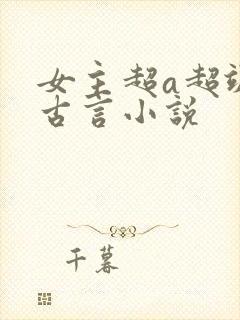 女主超a超
古言小说
千暮